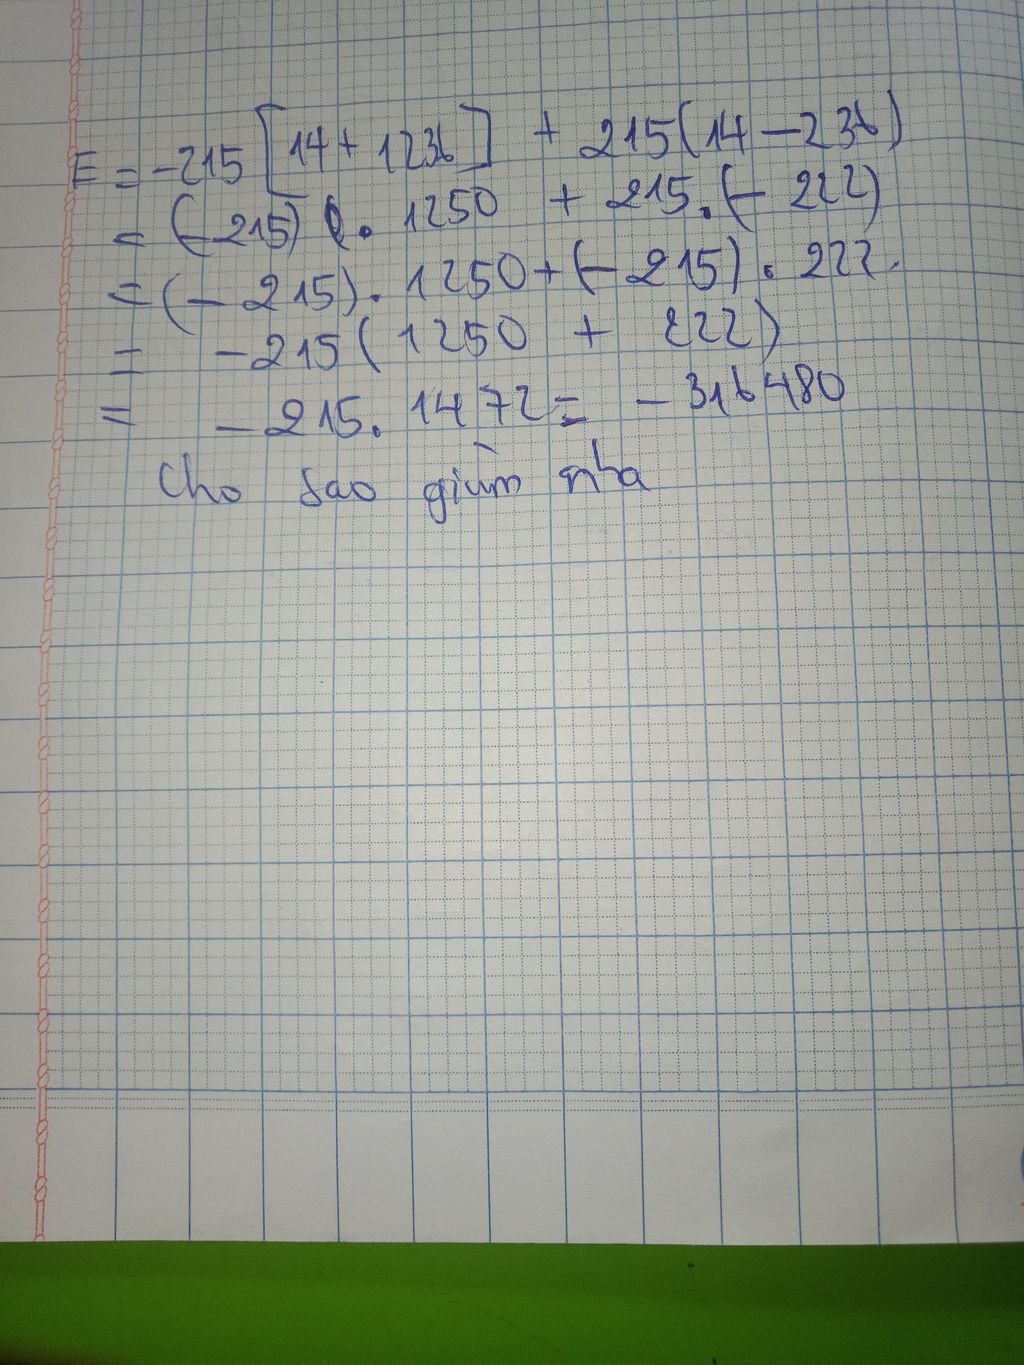 E = -215 [14 + 1236] + 215(14 - 236)
= (-215) . 1250 + 215.(- 222)
= (- 215). 1250 + (- 215) . 222.
= -215( 1250 + 222)
= -215. 1472 = - 316480
Cho sao giùm nha